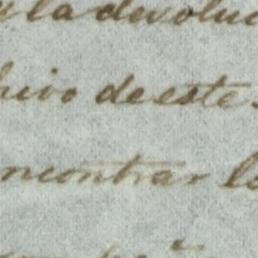 la devoluc
hivo de este
ncontrar lo